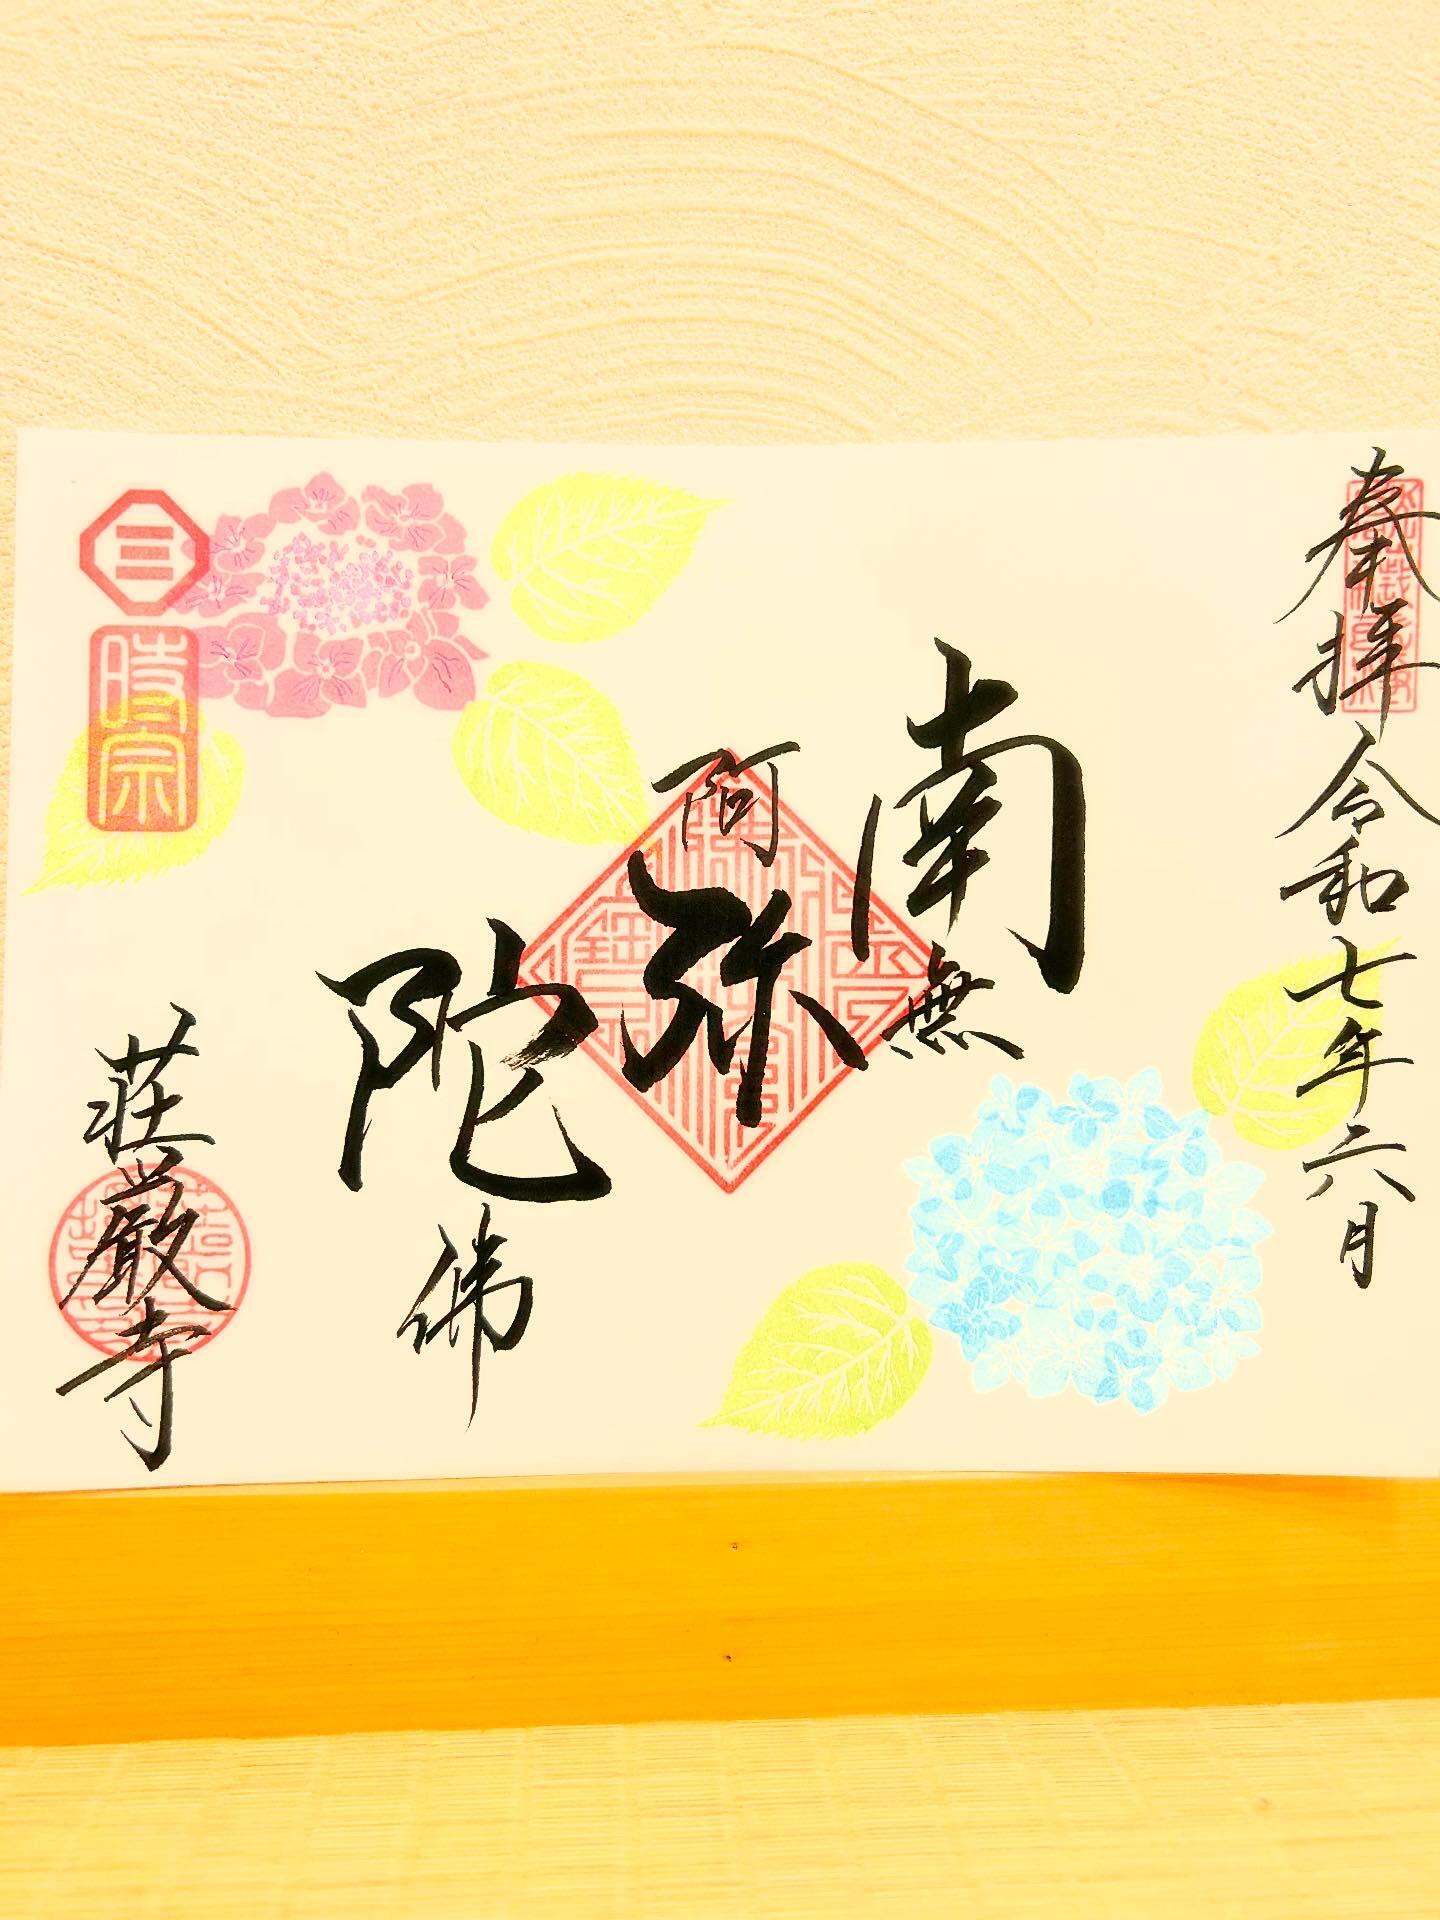 奉拝 令和七年六月
南無
阿弥
陀佛
三
時宗
荘厳寺